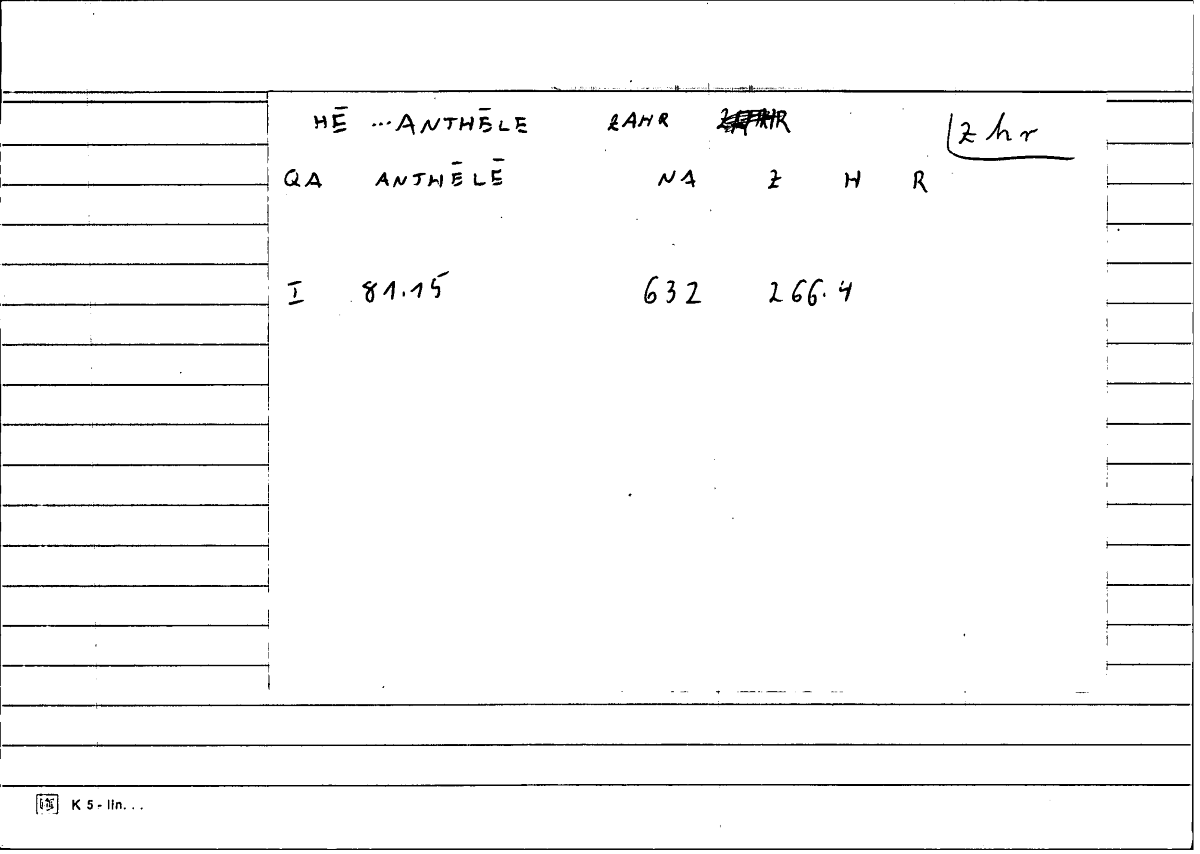 HĒ ...ANTHĒLE ZAHR
zhr
QA ANTHĒLĒ NA Z H R
I 81.15 632 266.4
K 5 - lin. . .